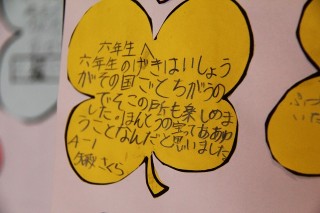 六年生へ
六年生のげきはいしょう
がその国ごとちがうの
でそこの所も楽しめま
した。ほんとうの宝ってああゆ
うことなんだと思いました
4-1
さくら